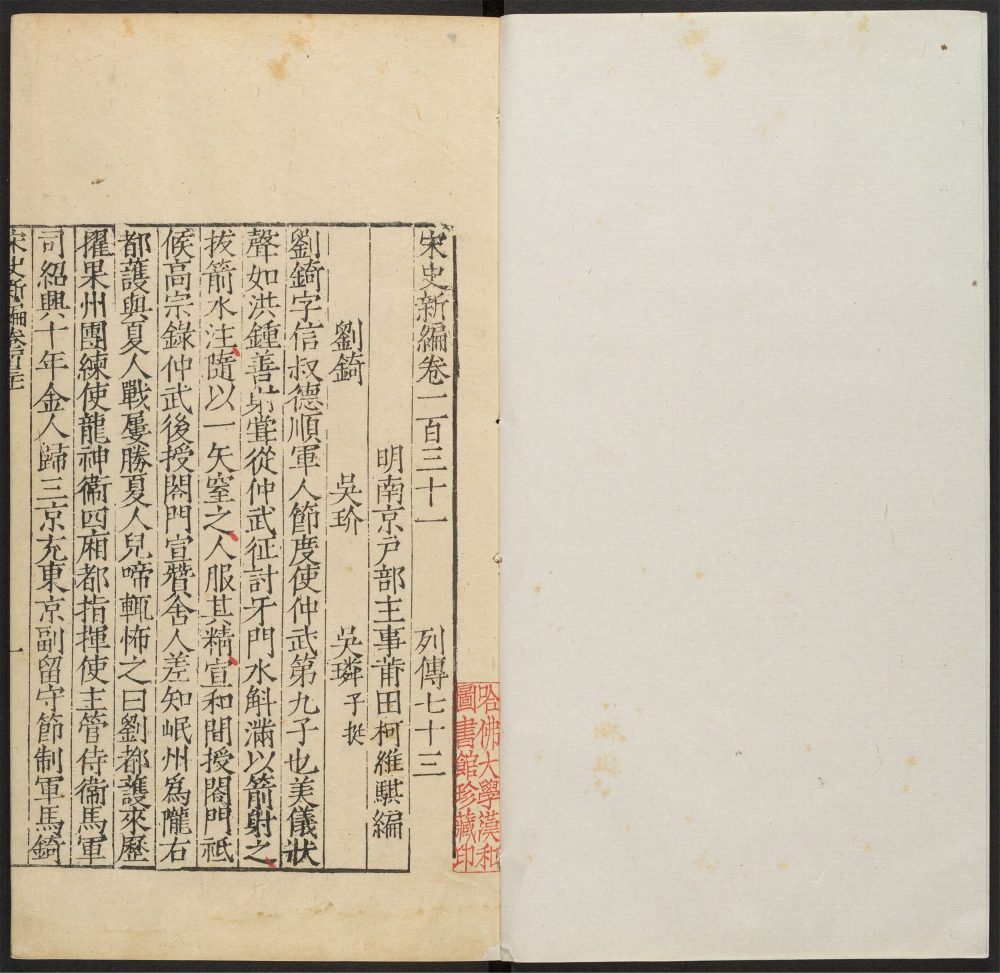 宋史新編卷一百三十一 列傳七十三
明南京戸部主事莆田柯維騏編
劉錡 吳玠 吳璘 子挺
劉錡字信叔德順軍人節度使仲武第九子也美儀狀
聲如洪鍾善射嘗從仲武征討牙門水斛滿以箭射之
拔箭水注隨以一矢窒之人服其精宣和間授閤門祗
候高宗錄仲武後授閤門宣贊舍人差知岷州爲隴右
都護與夏人戰屢勝夏人兒啼輒怖之曰劉都護來歷
擢果州團練使龍神衞四廂都指揮使主管侍衞馬軍
司紹興十年金人歸三京充東京副留守節制軍馬錡
宋史新編卷一百三十一
一
哈佛大學漢和
圖書館珍藏印